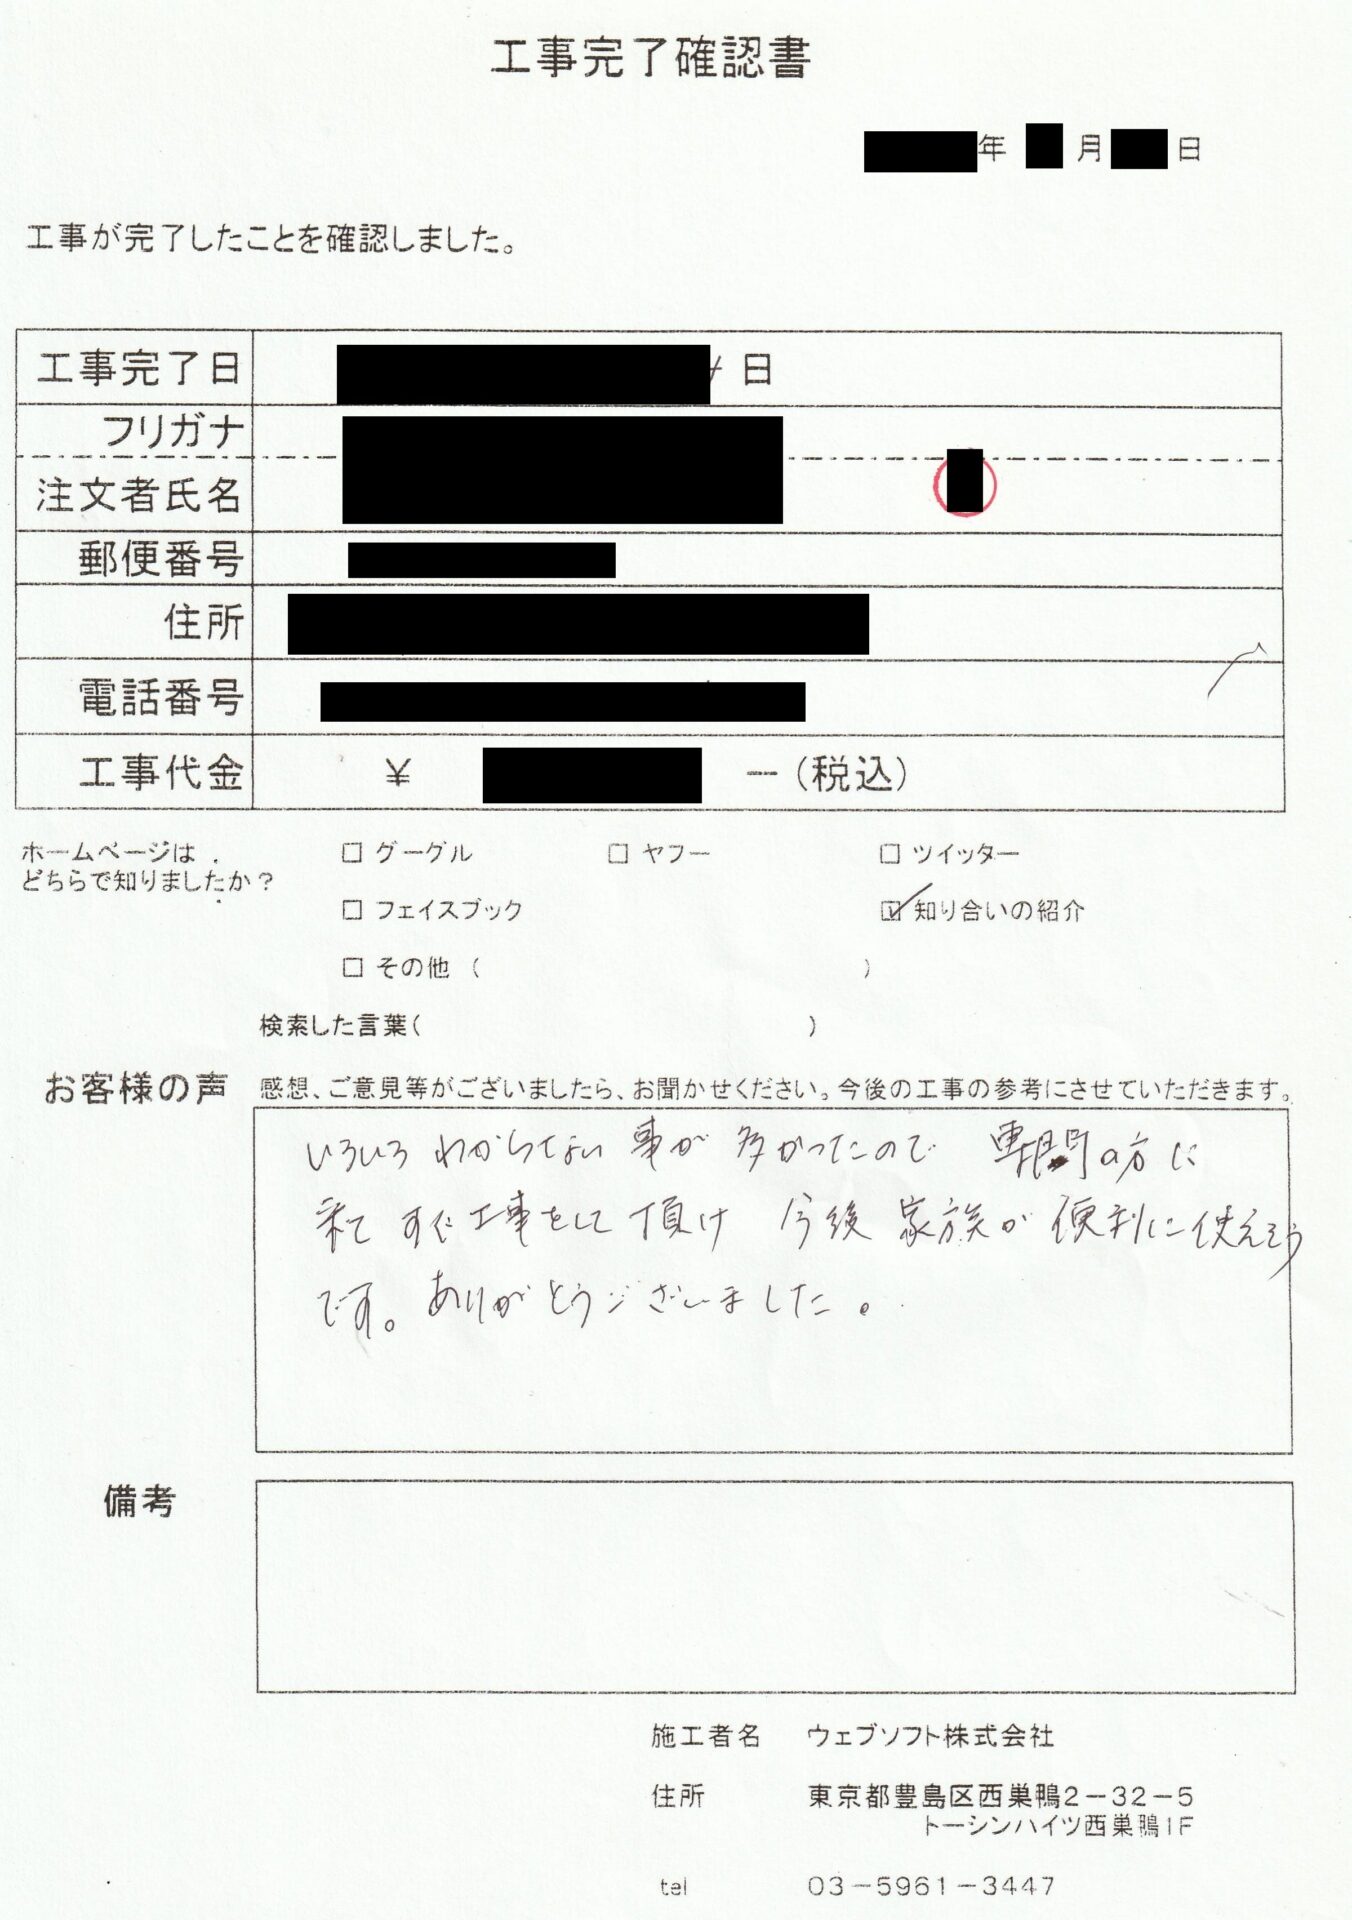 工事完了確認書
年 月 日
工事が完了したことを確認しました。
工事完了日 日
フリガナ
注文者氏名
郵便番号
住所
電話番号
工事代金 ¥ ー(税込)
ホームページは
どちらで知りましたか?
□ グーグル □ ヤフー □ ツイッター
□ フェイスブック ☑ 知り合いの紹介
□ その他 ( )
検索した言葉( )
お客様の声 感想、ご意見等がございましたら、お聞かせください。今後の工事の参考にさせていただきます。
いろいろ わからない 事が 多かったので 専門の方に
来て すぐ 工事をして 頂け 今後 家族が 便利に使えそう
です。ありがとうございました。
備考
施工者名 ウェブソフト株式会社
住所 東京都豊島区西巣鴨2-32-5
トーシンハイツ西巣鴨1F
tel 03-5961-3447